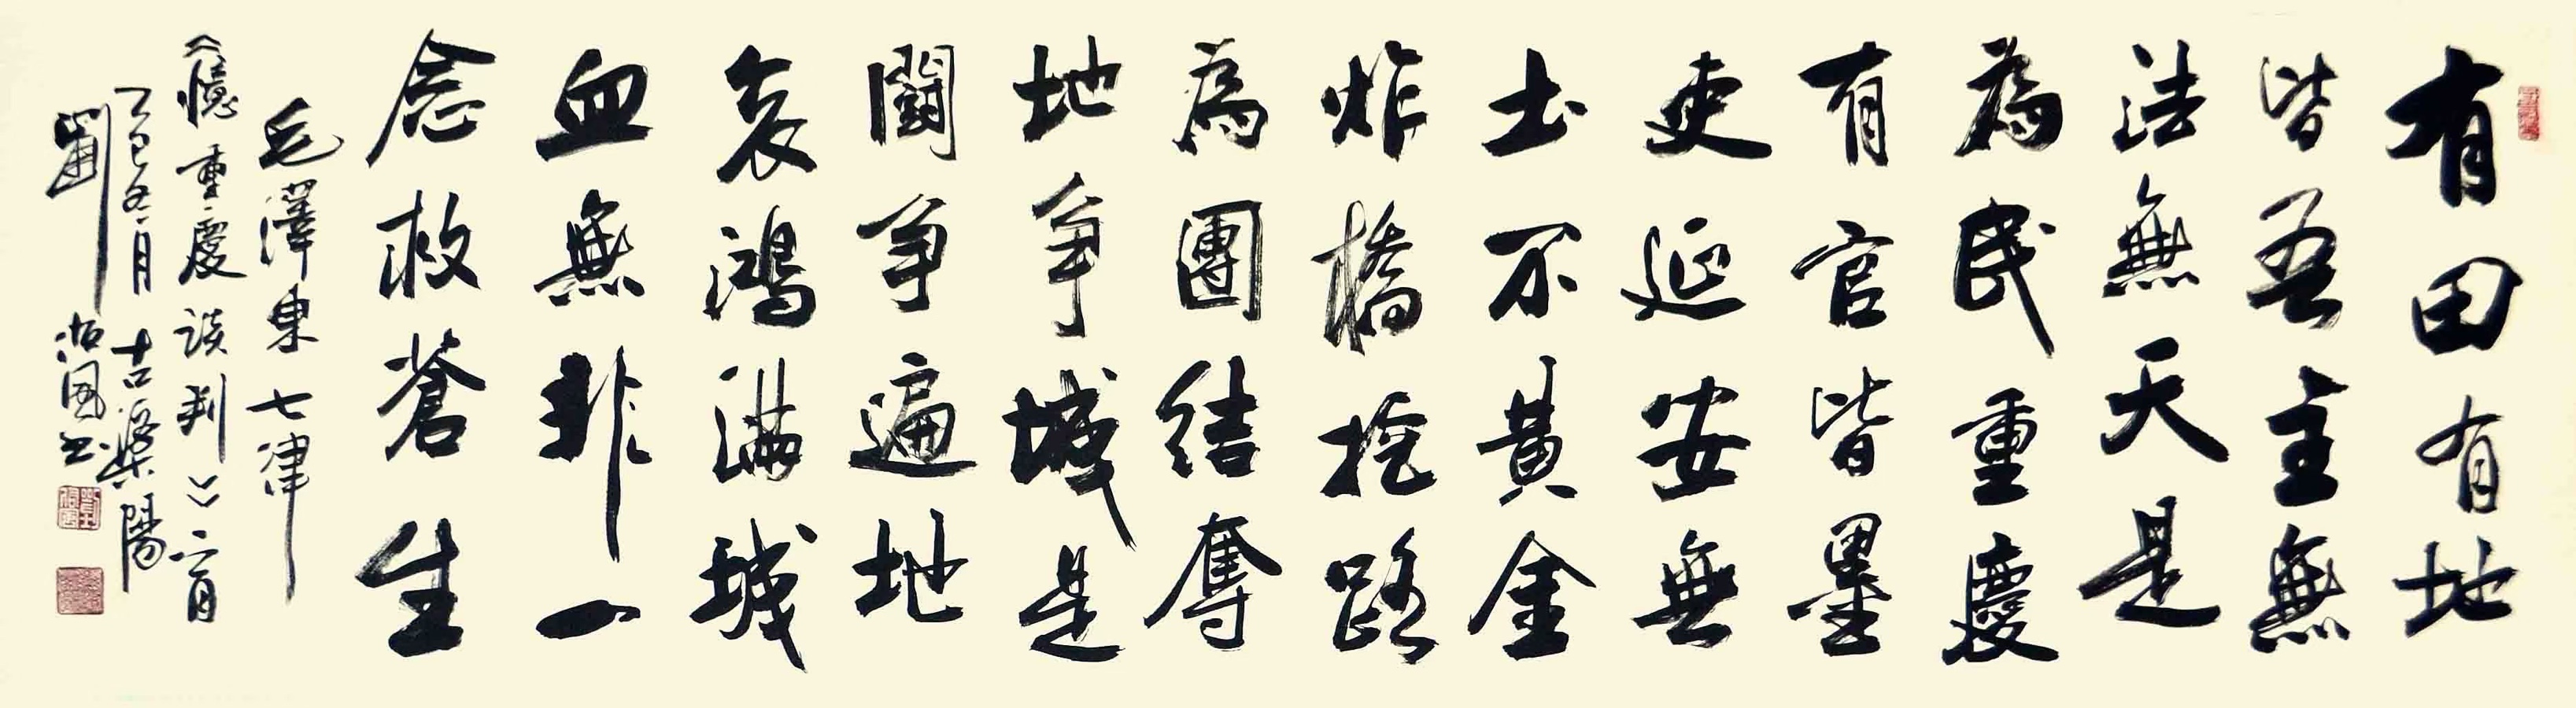 有田有地
皆吾主無
法無天是
為民重慶
有官皆墨
吏延安無
土不黃金
炸橋挖路
為團結奪
地爭城是
鬪争遍地
哀鴻滿城
血無非一
念救蒼生
毛澤東七律
《憶重慶談判》二首
乙巳冬月古溧陽
劉治國书